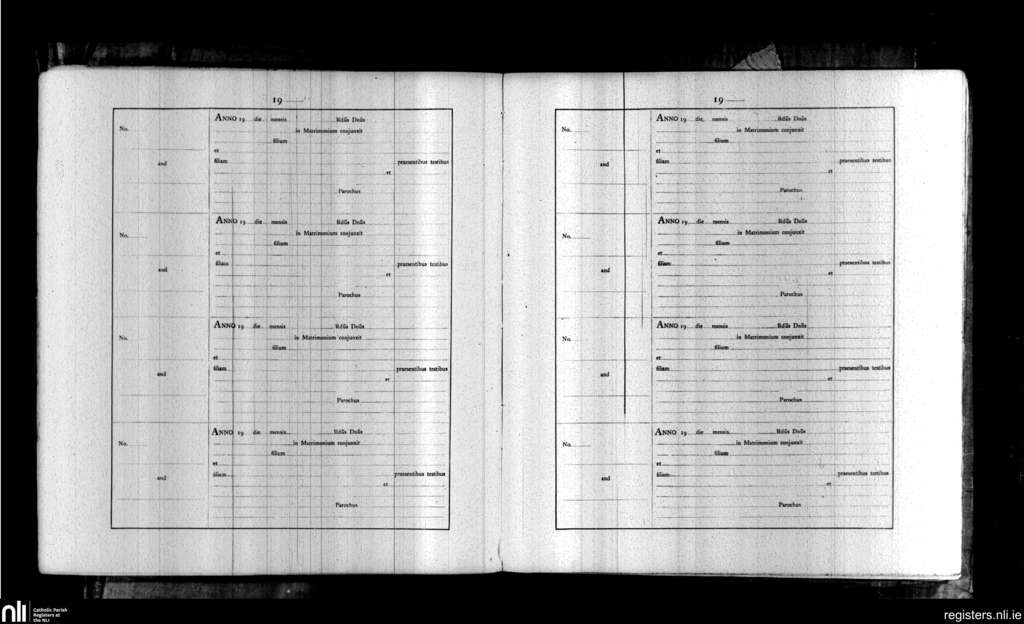 19
ANNO 19 die mensis Rdus Dnus
No.
in Matrimonium conjunxit
filium
et
and
filiam praesentibus testibus
et
Parochus
ANNO 19 die mensis Rdus Dnus
in Matrimonium conjunxit
No.
filium
et
filiam praesentibus testibus
and
et
Parochus
ANNO 19 die mensis Rdus Dnus
No.
in Matrimonium conjunxit
filium
et
filiam praesentibus testibus
and
et
Parochus
ANNO 19 die mensis Rdus Dnus
No.
in Matrimonium conjunxit
filium
et
filiam praesentibus testibus
and
et
Parochus
19
ANNO 19 die mensis Rdus Dnus
No.
in Matrimonium conjunxit
filium
et
and
filiam praesentibus testibus
et
Parochus
ANNO 19 die mensis Rdus Dnus
in Matrimonium conjunxit
No.
filium
et
filiam praesentibus testibus
and
et
Parochus
ANNO 19 die mensis Rdus Dnus
No.
in Matrimonium conjunxit
filium
et
filiam praesentibus testibus
and
et
Parochus
ANNO 19 die mensis Rdus Dnus
No.
in Matrimonium conjunxit
filium
et
filiam praesentibus testibus
and
et
Parochus
nli
Catholic Parish
Registers at
the NLI
registers.nli.ie